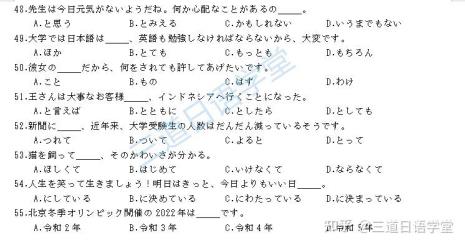 48.先生は今日元気がないようだね。何か心配なことがあるの_____。
A.と思う B.とみえる C.かもしれない D.いうまでもない
49.大学では日本語は_____、英語も勉強しなければならないから、大変です。
A.ほか B.とても C.もっとも D.もちろん
50.彼女の_____だから、何をされても許してあげたいです。
A.こと B.もの C.はず D.わけ
51.王さんは大事なお客様_____、インドネシアへ行くことになった。
A.と言えば B.とともに C.としたら D.としても
52.新聞に_____、近年来、大学受験生の人数はだんだん減っているそうです。
A.つれて B.ついて C.よると D.とって
53.猫を飼って_____、そのかわいさが分かる。
A.ほしくて B.はじめて C.いけなくて D.ならなくて
54.人生を笑って生きましょう！明日はきっと、今日よりもいい日_____。
A.にしている B.に決めている C.にわたっている D.に決まっている
55.北京冬季オリンピック開催の 2022年は_____です。
A.令和2年 B.令和3年 C.令和4年 D.令和5年
三道日语学堂
知乎 @三道日语学堂